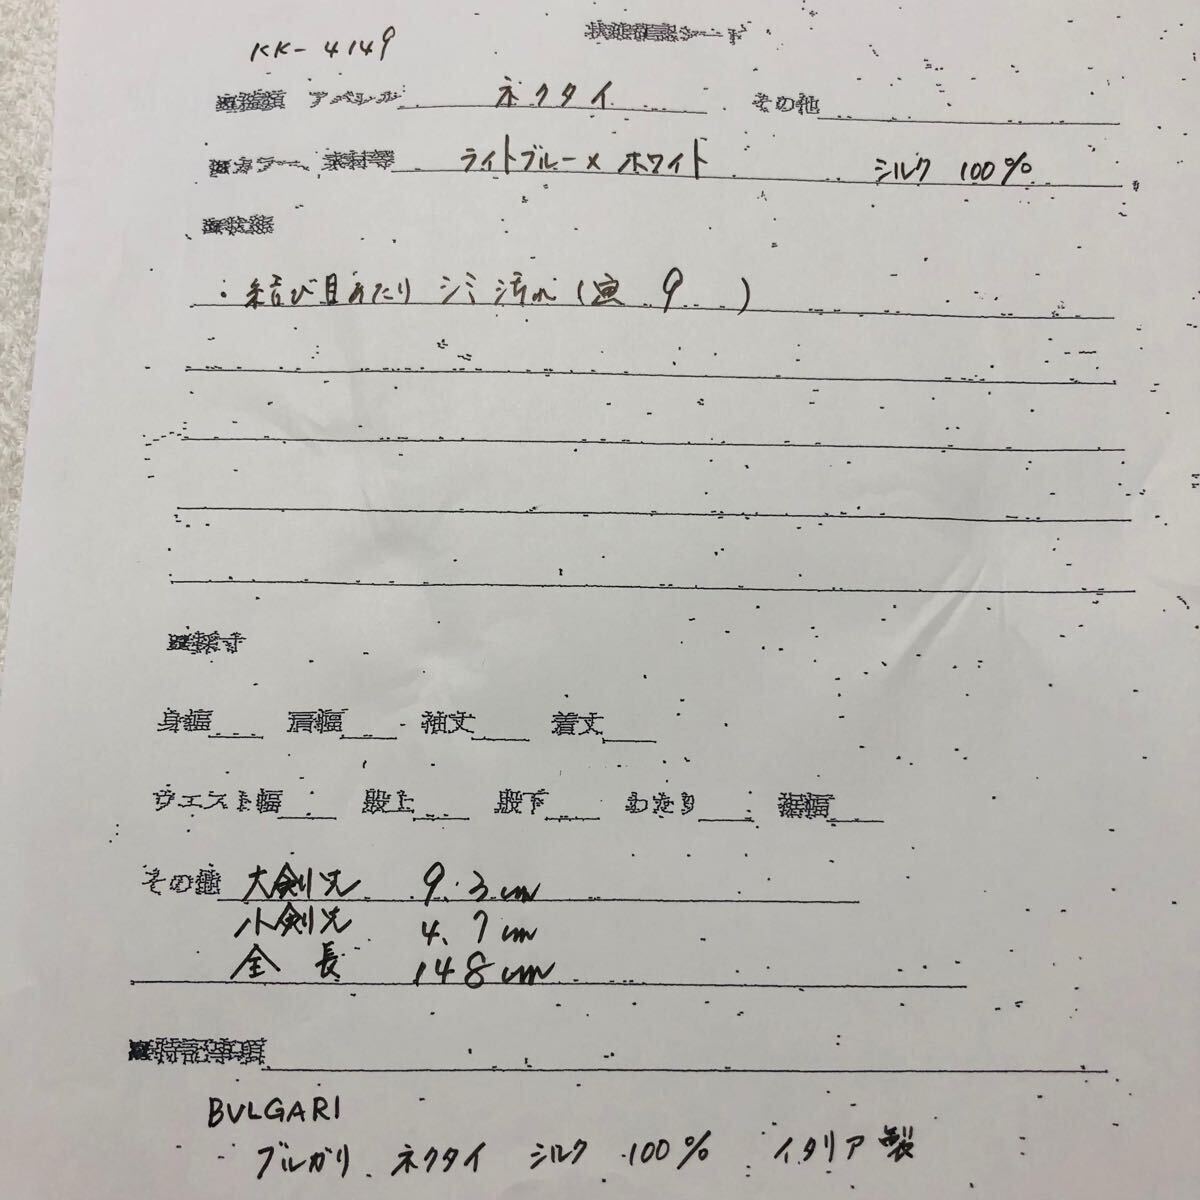 状態確認シート
KK-4149
■種類 アパレル ネクタイ その他
■カラー、素材等 ライトブルー×ホワイト シルク 100%
■状態
・結び目あたり シミ 汚れ (画 9 )
■採寸
身幅 肩幅 袖丈 着丈
ウエスト幅 股上 股下 わたり 裾幅
その他 大剣先 9.3cm
小剣先 4.7cm
全長 148cm
■特記事項
BVLGARI
ブルガリ ネクタイ シルク 100% イタリア製